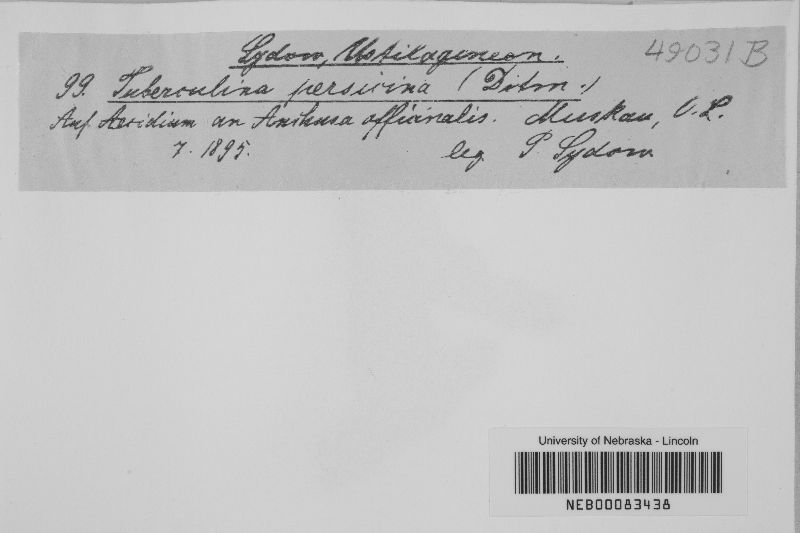 Sydow, Ustilagineen. 49031 B
99. Tuberculina persicina (Ditm.)
Auf Aecidium an Anchusa officinalis. Muskau, O.L.
7. 1895. leg P Sydow
University of Nebraska - Lincoln
NEB00083438